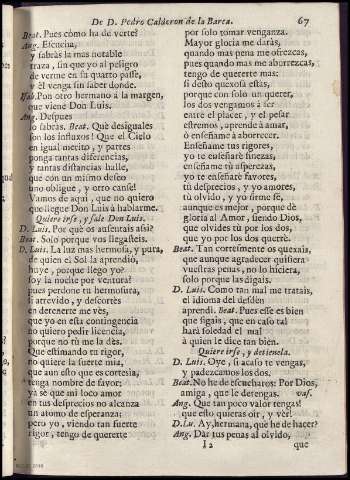 De D. Pedro Calderon de la Barca. 67
Beat. Pues còmo ha de verte?
Ang. Escucha,
y sabràs la mas notable
traza, sin que yo al peligro
de verme en su quarto passe,
y èl venga sin saber donde.
Isab. Pon otro hermano à la margen,
que viene Don Luis.
Ang. Despues
lo sabràs. Beat. Què desiguales
son los influxos! Que el Cielo
en igual merito, y partes
ponga tantas diferencias,
y tantas distancias halle,
que con un mismo deseo
uno obligue, y otro canse!
Vamos de aqui, que no quiero
que llegue Don Luis à hablarme.
Quiere irse, y sale Don Luis.
D. Luis. Por què os ausentais assi?
Beat. Solo porque vos llegasteis.
D. Luis. La luz mas hermosa, y pura,
de quien el Sol la aprendiò,
huye, porque llego yo?
soy la noche por ventura?
pues perdone tu hermosura,
si atrevido, y descortès
en detenerte me vès,
que yo en esta contingencia
no quiero pedir licencia,
porque no tù me la dès.
Que estimando tu rigor,
no quiere la suerte mia,
que aun esto que es cortesia,
tenga nombre de favor:
ya sè que mi loco amor
en tus desprecios no alcanza
un atomo de esperanza;
pero yo, viendo tan fuerte
rigor, tengo de quererte
por solo tomar venganza.
Mayor gloria me daràs,
quando mas pena me ofrezcas,
pues quando mas me aborrezcas,
tengo de quererte mas:
si desto quexosa estàs,
porque con solo un querer,
los dos vengamos à ser
entre el placer, y el pesar
estremos, aprende à amar,
ò enseñame à aborrecer.
Enseñame tus rigores,
yo te enseñarè finezas,
enseñame tù asperezas,
yo te enseñarè favores,
tù desprecios, y yo amores,
tù olvido, y yo firme fé,
aunque es mejor, porque dè
gloria al Amor, siendo Dios,
que olvides tù por los dos,
que yo por los dos querrè.
Beat. Tan cortesmente os quexais,
que aunque agradecer quisiera
vuestras penas, no lo hiciera,
solo porque las digais.
D. Luis. Como tan mal me tratais,
el idioma del desdèn
aprendì. Beat. Pues esse es bien
que sigais, que en caso tal
harà soledad el mal
à quien le dice tan bien.
Quiere irse, y detienela.
D. Luis. Oye, si acaso te vengas,
y padezcamos los dos.
Beat. No he de escucharos: Por Dios,
amiga, que le detengas. vas.
Ang. Que tan poco valor tengas!
que esto quieras oir, y vèr!
D. Lu. Ay, hermana, què he de hacer?
Ang. Dàr tus penas al olvido,
I 2 que